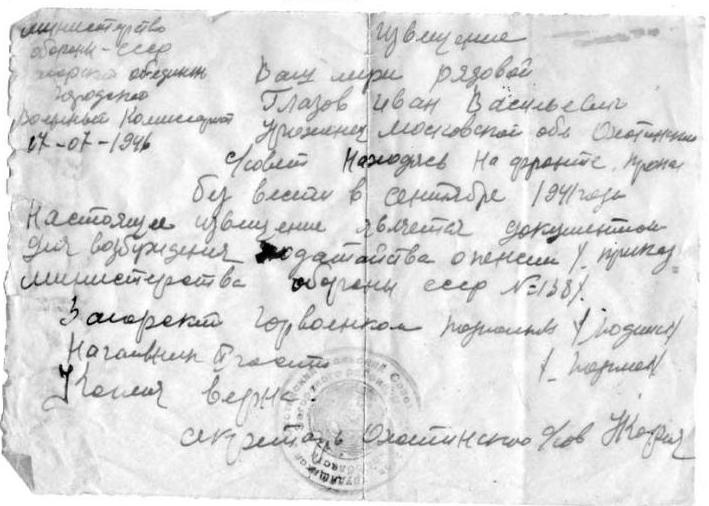 министерство
обороны - ссср
Загорский объедин
городской
Военный Комиссариат
17-07-1946
извещение
Ваш муж рядовой
Глазов Иван Васильевич
Уроженец Московской обл Охотинский
с/совет Находясь На фронте пропал
без вести в сентябре 1941 года
Настоящее извещение является документом
для возбуждения ходатайства о пенсии /. приказ
министерства обороны ссср №138/.
Загорский горвоенком полковник /
Начальник части /
Копия верна.
секретарь Охотинского с/сов